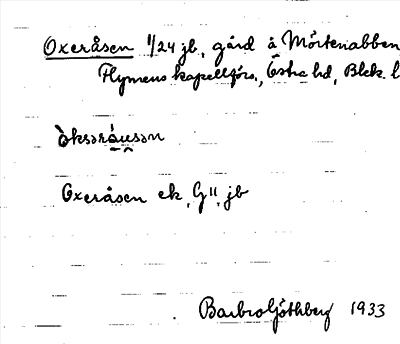 Oxeråsen 1/24 jb, gård å Mörtenabben
Flymens kapellförs., Östra hd, Blek. l
òksəråusən
Oxeråsen ek, G11, jb
Barbro Göthberg 1933